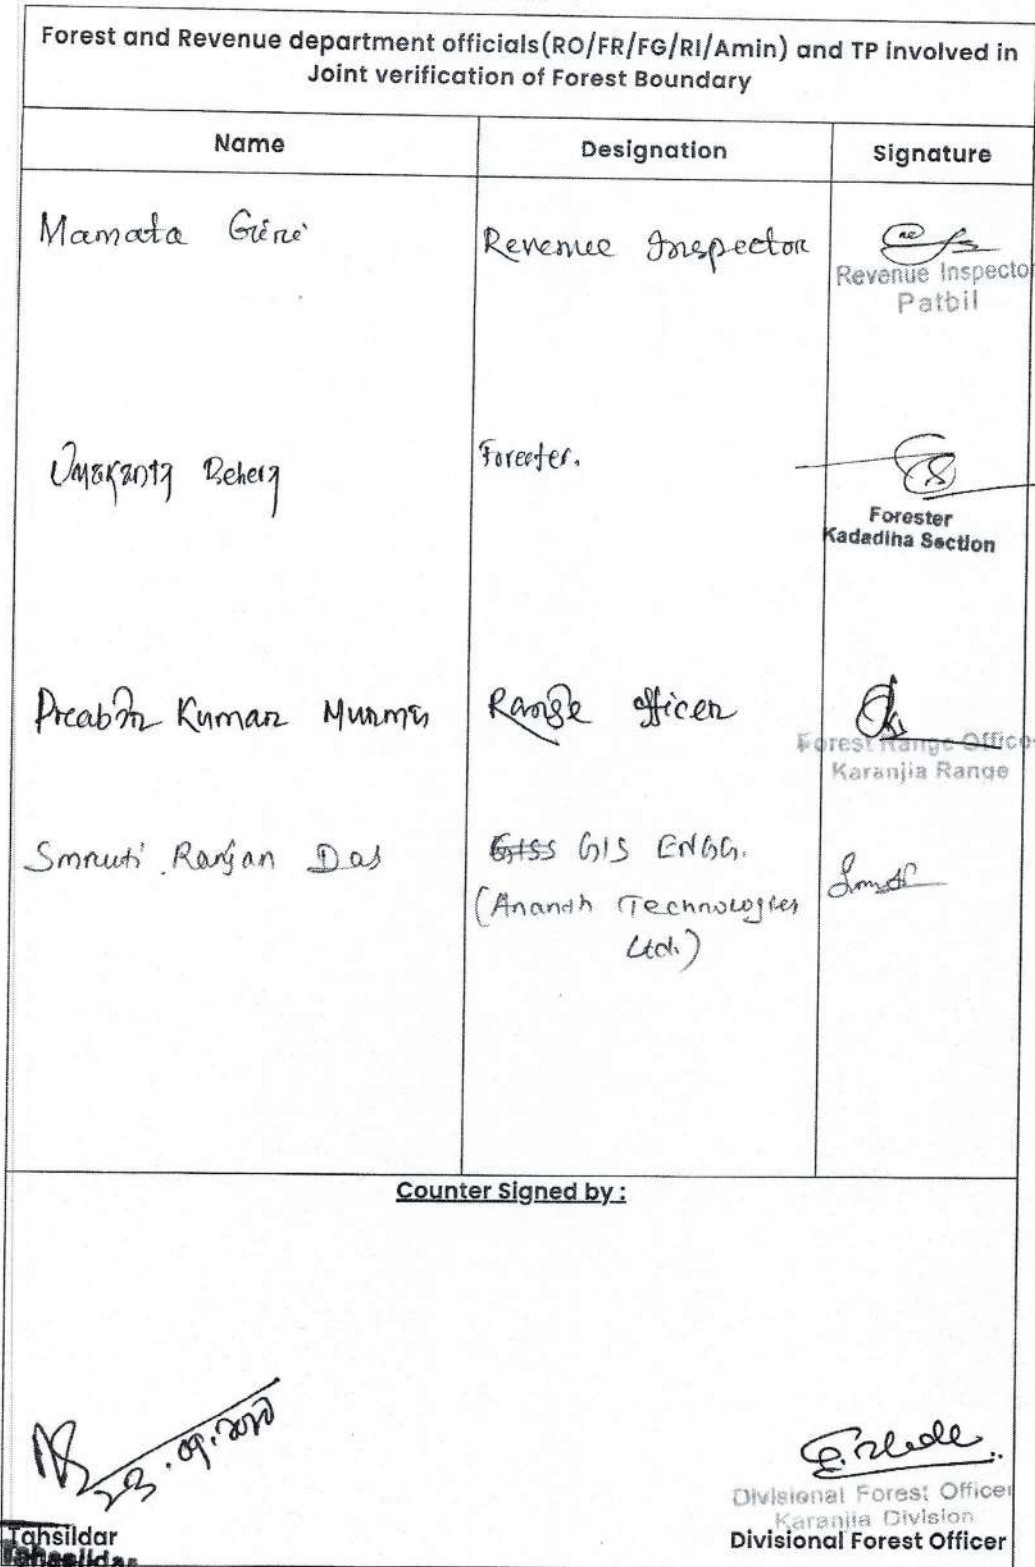 Forest and Revenue department officials(RO/FR/FG/RI/Amin) and TP involved in
Joint verification of Forest Boundary
Name Designation Signature
Mamata Giri Revenue Inspector
Revenue Inspecto
Patbil
Umakanta Behera Forester.
Forester
Kadadiha Section
Prabir Kumar Murmu Range Officer
Forest Range Office
Karanjia Range
Smruti Ranjan Das GIS ENGG.
(Ananth Technologies
Ltd.)
Counter Signed by :
23.09.2020
Divisional Forest Officer
Karanjia Division
Tahsildar Divisional Forest Officer
Tahasildar